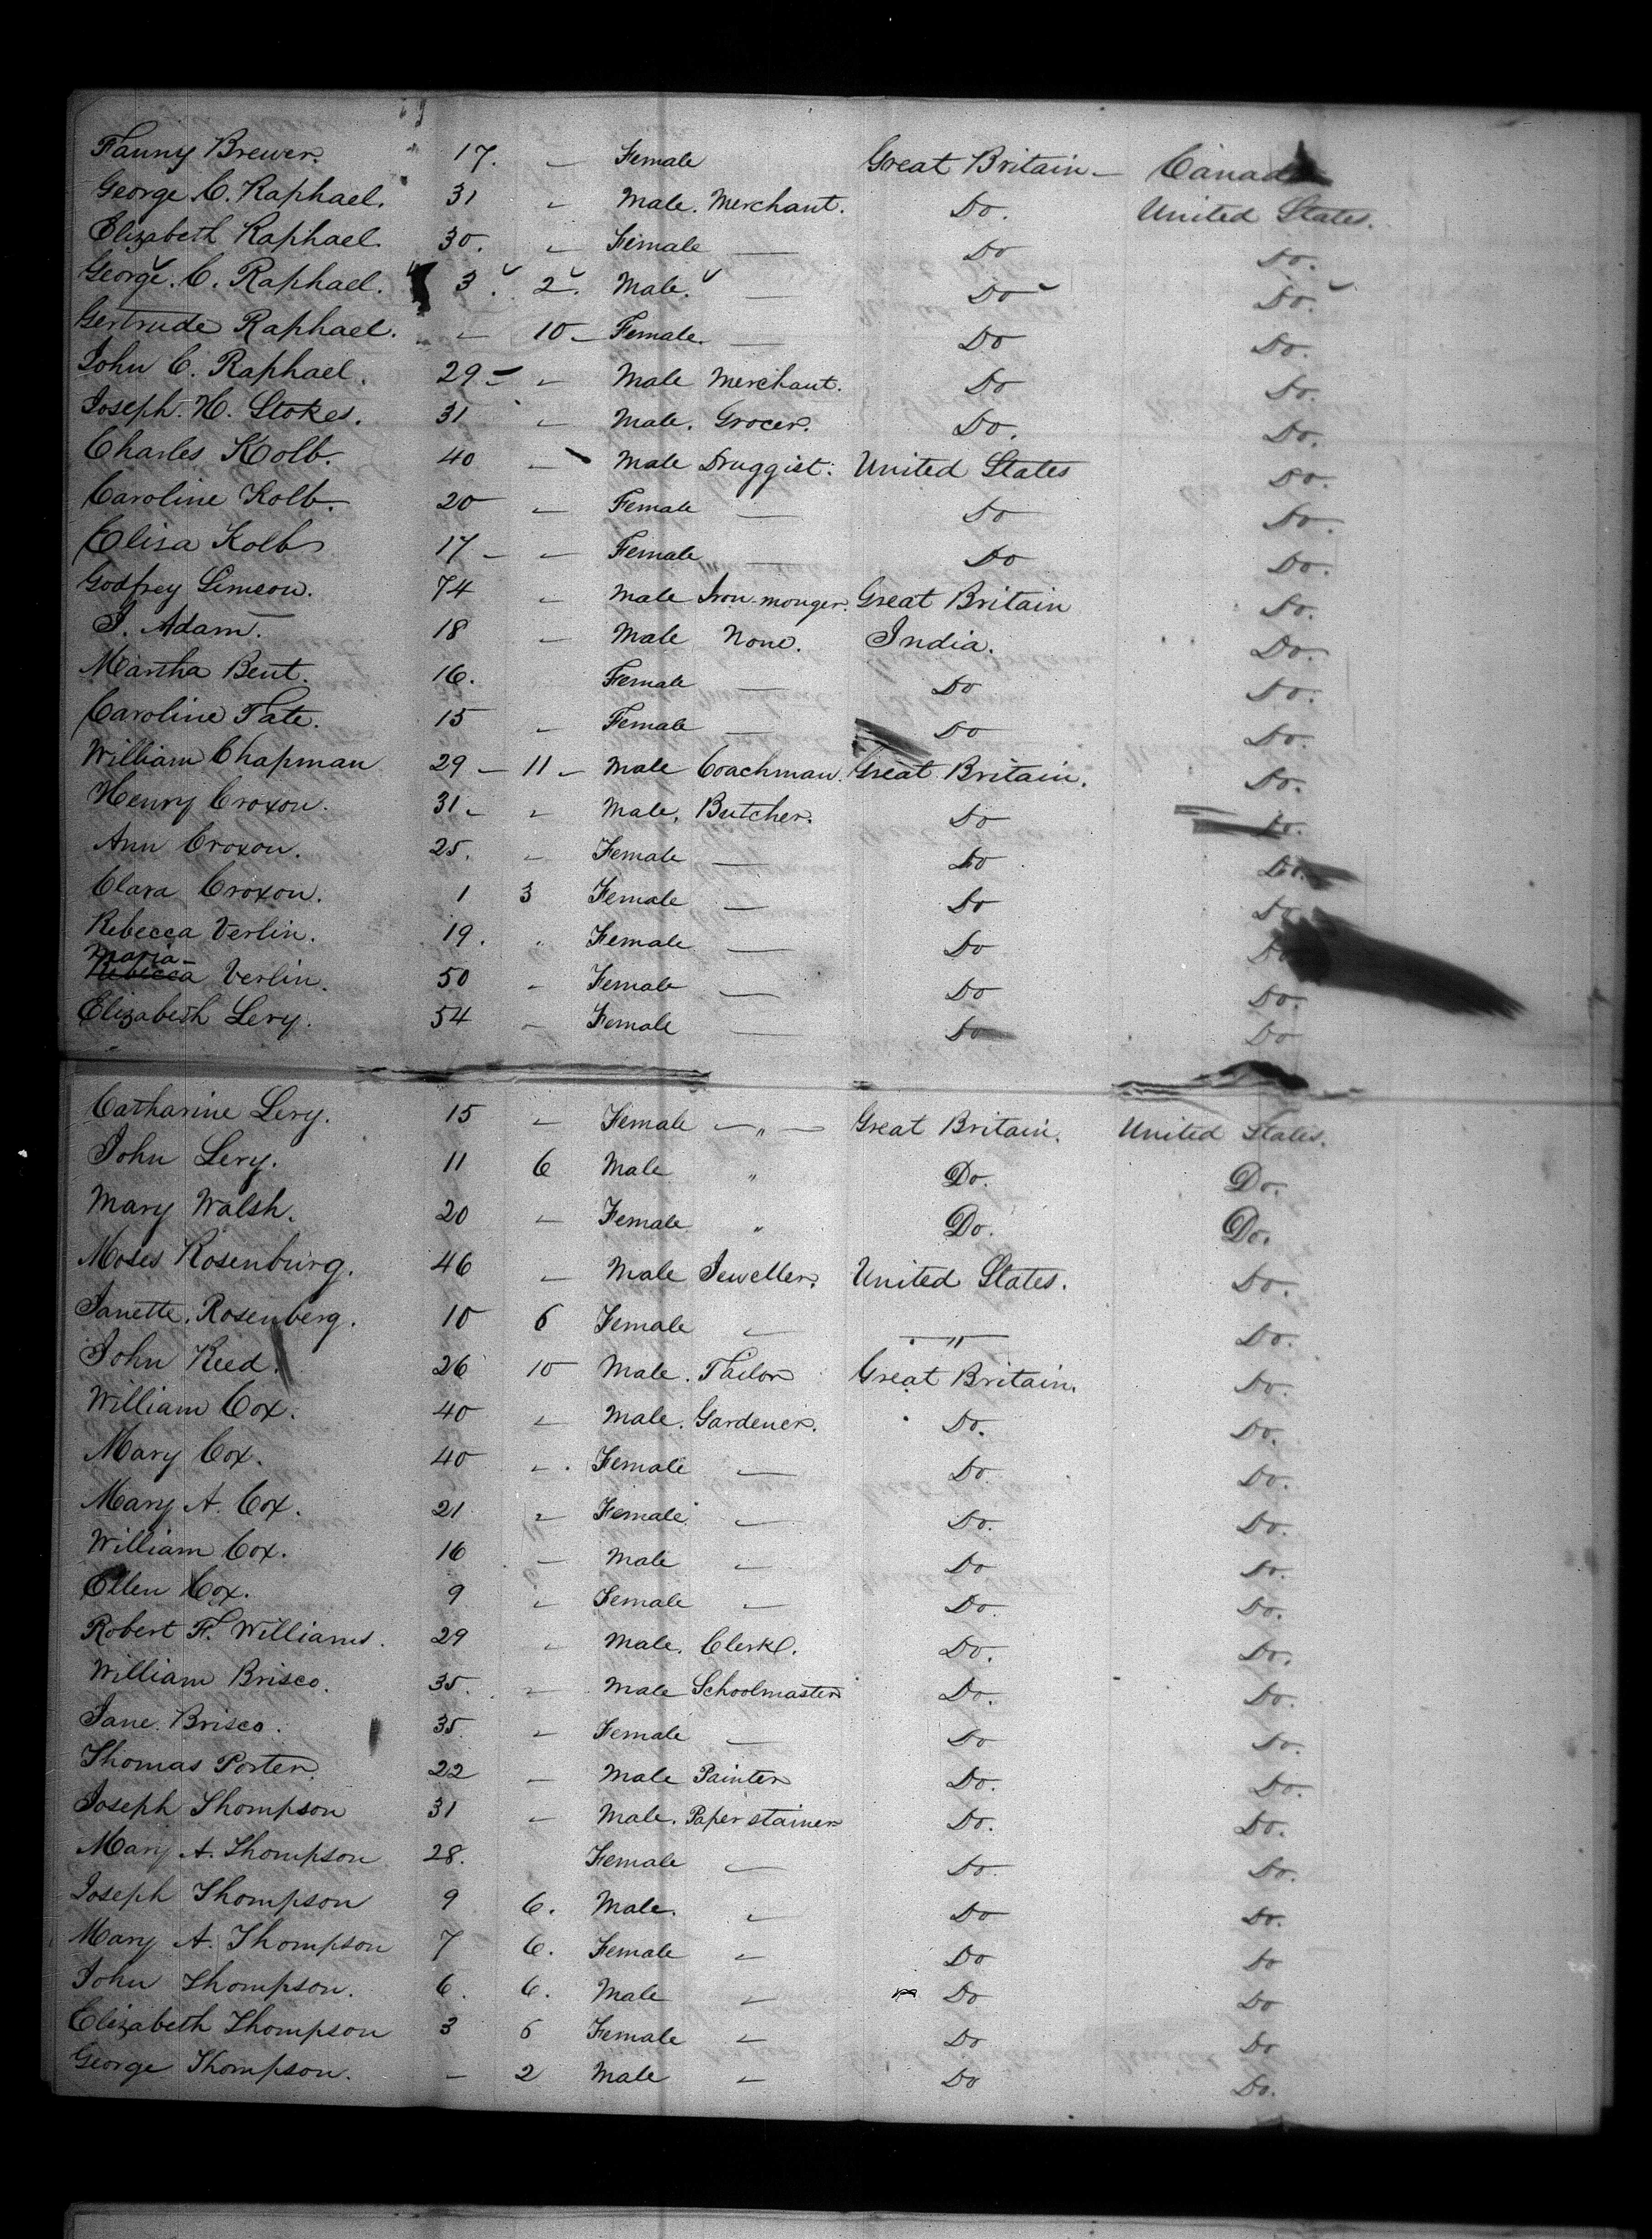 Fanny Brewer. 17. – Female Great Britain – Canada
George C. Raphael. 31 – Male. Merchant. Do. United States.
Elizabeth Raphael. 30. – Female — Do Do.
George. C. Raphael. 3. 2. Male. — Do Do.
Gertrude Raphael. – 10 – Female. — Do Do.
John C. Raphael. 29 – – Male Merchant. Do Do.
Joseph. H. Stokes. 31 – Male. Grocer. Do. Do.
Charles Kolb. 40 – Male Druggist. United States Do.
Caroline Kolb. 20 – Female — Do Do.
Elisa Kolb 17 – – Female — Do Do.
Godfrey Simeon. 74 – Male Iron-monger. Great Britain Do.
J. Adam. 18 – Male None. India. Do.
Martha Bent. 16. Female — Do Do.
Caroline Tate. 15 – Female — Do Do.
William Chapman 29 – 11 – Male Coachman. Great Britain. Do.
Henry Croxon. 31 – – Male, Butcher. Do Do.
Ann Croxon. 25. – Female — Do Do.
Clara Croxon. 1 3 Female — Do Do.
Rebecca Verlin. 19. „ Female — Do Do
Maria –
Rebecca Verlin. 50 – Female — Do Do.
Elizabeth Levy. 54 – Female — Do Do
Catharine Levy. 15 – Female – „ – Great Britain. United States.
John Levy. 11 6 Male „ Do. Do.
Mary Walsh. 20 – Female „ Do. Do.
Moses Rosenburg. 46 – Male Jeweller. United States. Do.
Janette. Rosenberg. 10 6 Female – – „ – Do.
John Reed. 26 10 Male. Tailor Great Britain. Do.
William Cox. 40 – Male. Gardener. Do. Do.
Mary Cox. 40 –. Female — Do. Do.
Mary A. Cox. 21 – Female – Do. Do.
William Cox. 16 – Male – Do Do.
Ellen Cox. 9 – Female – Do. Do.
Robert F. Williams. 29 – Male. Clerk. Do. Do.
William Brisco. 35. – Male Schoolmaster Do. Do.
Jane. Brisco. 35 – Female — Do Do.
Thomas Porter. 22 – Male Painter Do. Do.
Joseph Thompson 31 – Male. Paper stainer Do. Do.
Mary A. Thompson 28. Female – Do Do.
Joseph Thompson 9 6. Male. – Do Do.
Mary A. Thompson 7 6. Female – Do Do
John Thompson. 6. 6. Male – Do Do
Elizabeth Thompson 3 6 Female – Do Do
George Thompson. – 2 Male – Do Do.